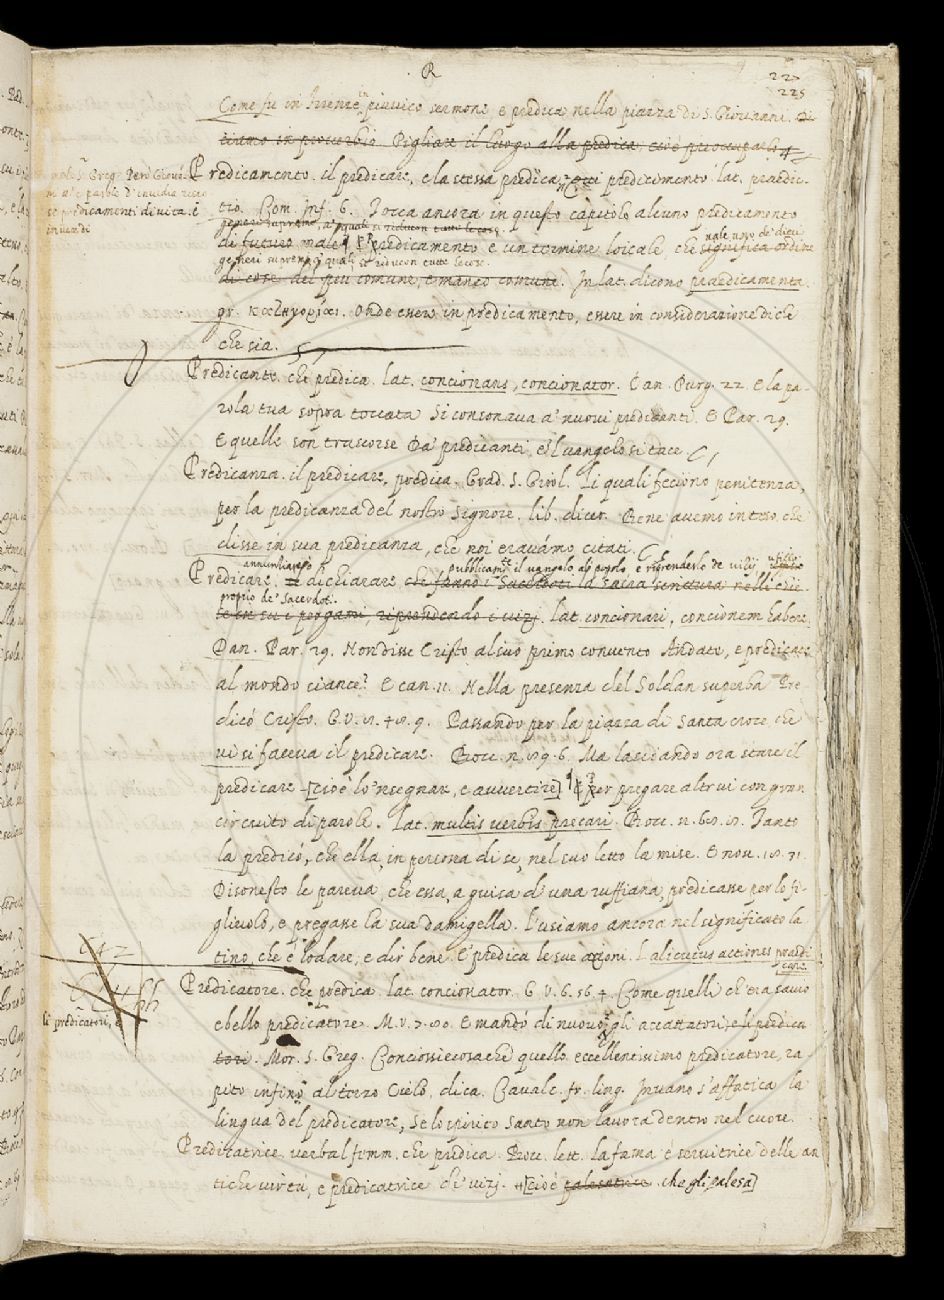 R
227
225
Come fu in Firenze in piuvico sermone e predica nella piazza di S. Giovanni. Di
ciamo in proverbio Pigliare il luogo alla predica, cioè preoccuparlo
Predicamento. il predicare, e la stessa predica. oggi predicimento. lat. praedic-
tio. Com. Inf. 6. Tocca ancora in questo capitolo alcuno predicamento
di futuro male. E predicamento è un termine loicale, che significa ordine
generi supremi, a' quali si riducon tutte le cose.
di cose del più comune, e manco comune. In lat. dicono praedicamenta
gr. κατηγορίαι. Onde essere in predicamento, essere in considerazione di che
che sia.
Predicante. che predica. lat. concionans, concionator. Dan. Purg. 22. E la pa-
rola tua sopra toccata Si consonava a' nuovi predicanti. E Par. 29.
E quelle son trascorse Da' predicanti, e'l vangelo si tace
Predicanza. il predicare, predica. Grad. S. Girol. Li quali feciono penitenza,
per la predicanza del nostro Signore. lib. dicer. Bene avemo inteso, che
disse in sua predicanza, che noi eravamo citati.
annunziare
pubblicamte il vangelo al popolo e riprenderlo de vizij ufizio
Predicare. dichiarare che fanno i Sacerdoti la sacra scrittura nelle chie
proprio de' Sacerdoti.
se in su i pergami, riprendendo i vizj. lat. concionari, concionem habere.
Dan. Par. 29. Non disse Cristo al suo primo convento Andate, e predicate
al mondo ciance? E can. 11. Nella presenza del Soldan superba Pre
dicò Cristo. G. V. Passando per la piazza di Santa croce che
vi si faceva il predicare. Bocc. n. Ma lasciando ora stare il
predicare [cioè lo 'nsegnare, e avvertire] E per pregare altrui con gran
circuito di parole. lat. multis verbis precari. Bocc. n. Tanto
la predicò, che ella in persona di se, nel suo letto la mise. E nov.
Disonesto le pareva, che essa, a guisa d'una ruffiana, predicasse per lo fi-
gliuolo, e pregasse la sua damigella. l'usiamo ancora nel significato la
tino, che è lodare, e dir bene. E' predica le sue azioni. L alicuius actiones praedi
care.
Predicatore. che predica. lat. concionator. G. V. 6. 56. 4. Come quelli ch'era savio
e bello predicatore. M. V. E mandò di nuovo gli accattatori, e li predica
li predicatori, e
tori. Mor. S. Greg. Conciossiecosachè quello eccellentissimo predicatore, ra
pito infino al terzo Cielo, dica. Cavalc. fr. ling. Invano s'affatica la
lingua del predicatore, se lo spirito santo non lavora dentro nel cuore.
Predicatrice. verbal femm. che predica. Bocc. lett. La fama è servitrice delle an
tiche virtù, e predicatrice de' vizj. [cioè palesatrice che gli palesa]